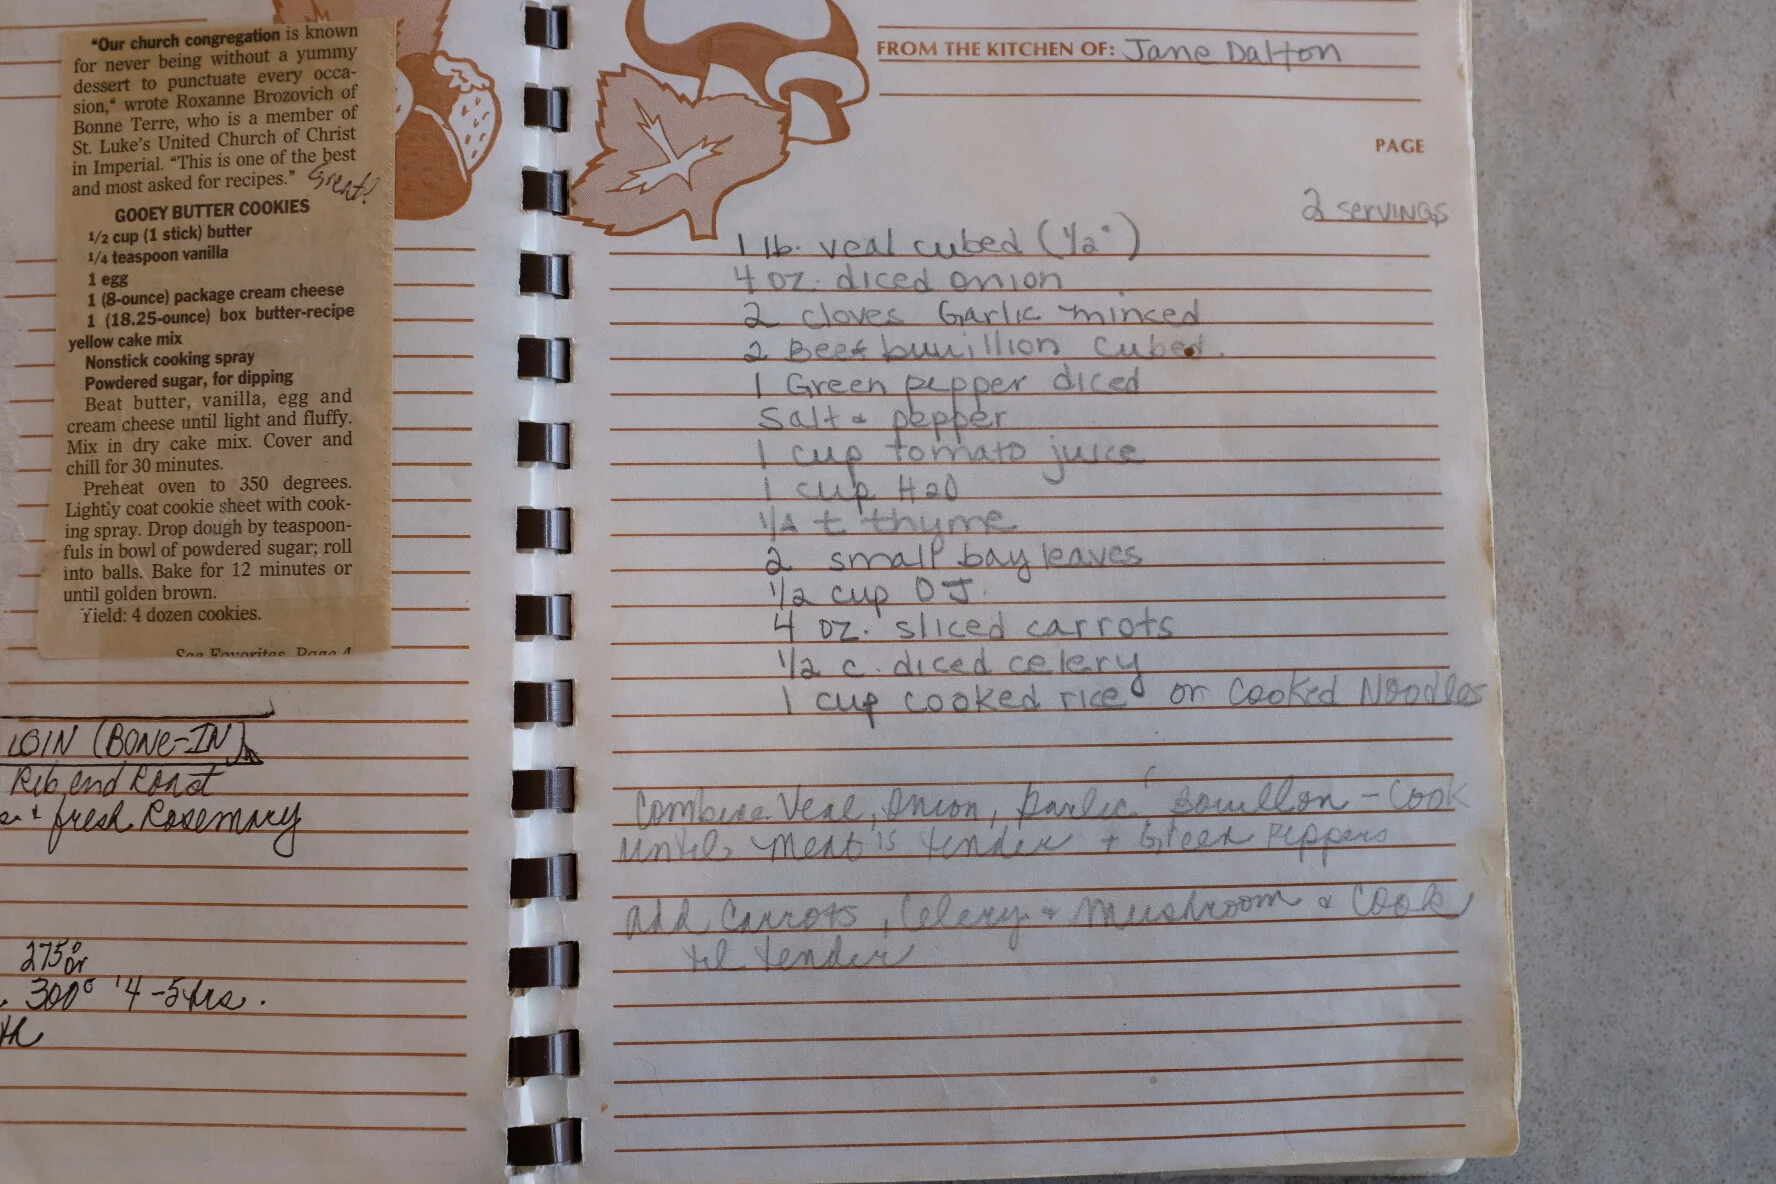 "Our church congregation is known
for never being without a yummy
dessert to punctuate every occa-
sion," wrote Roxanne Brozovich of
Bonne Terre, who is a member of
St. Luke's United Church of Christ
in Imperial. "This is one of the best
and most asked for recipes." Great!
GOOEY BUTTER COOKIES
1/2 cup (1 stick) butter
1/4 teaspoon vanilla
1 egg
1 (8-ounce) package cream cheese
1 (18.25-ounce) box butter-recipe
yellow cake mix
Nonstick cooking spray
Powdered sugar, for dipping
Beat butter, vanilla, egg and
cream cheese until light and fluffy.
Mix in dry cake mix. Cover and
chill for 30 minutes.
Preheat oven to 350 degrees.
Lightly coat cookie sheet with cook-
ing spray. Drop dough by teaspoon-
fuls in bowl of powdered sugar; roll
into balls. Bake for 12 minutes or
until golden brown.
Yield: 4 dozen cookies.
See Favorites, Page 4
LOIN (BONE-IN)
Rib end Roast
+ fresh Rosemary
275° or
300° 4-5 hrs.
FROM THE KITCHEN OF: Jane Dalton
PAGE
2 servings
1 lb. veal cubed (1/2")
4 oz. diced onion
2 cloves Garlic minced
2 Beef buuillion cubed.
1 Green pepper diced
Salt & pepper
1 cup tomato juice
1 cup H2O
1/4 t thyme
2 small bay leaves
1/2 cup OJ.
4 oz. sliced carrots
1/2 c. diced celery
1 cup cooked rice or cooked Noodles
Combine Veal, Onion, Garlic, Bouillon - Cook
until meat is tender + Green Peppers
add Carrots, Celery + Mushroom & Cook
til tender